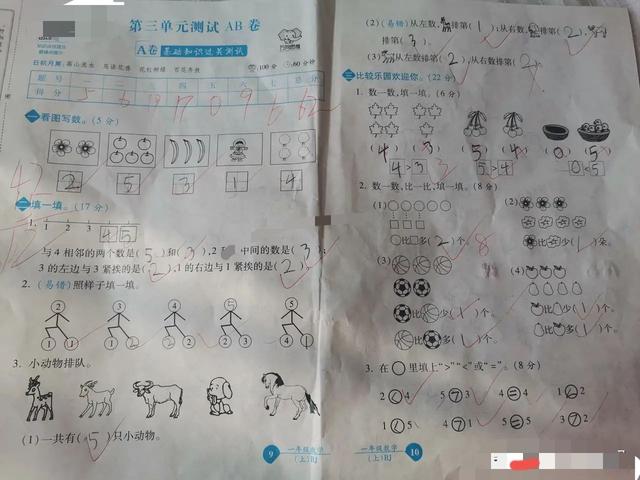 第三单元测试 AB 卷
A卷 基础知识过关测试
日积月累：高山流水 鸟语花香 花红柳绿 百花齐放
100分 60分钟
题号 一 二 三 四 五 六 七 总分
得分 5 6 19 17 0 9 6 62
一、看图写数。(5分)
2 5 3 1 4
二、填一填。(17分)
1. 1 2 3 4 5
与4相邻的两个数是(5)和(3),2 中间的数是(3);
3的左边与3紧挨的是(2);1的右边与1紧挨的是(2)。
2. (易错)照样子填一填。
2 3 4 5 5
1 1 1 2 4 1
3. 小动物排队。
(1)一共有(5)只小动物。
9 一年级数学(上)RJ
(2)(易错)从左数,排第(1);从右数,排第(2),
排第(3)。
(3)从左数排第(2),从右数排第(2)。
三、比较乐园欢迎你。(22分)
1. 数一数,填一填。(6分)
(4) (3) (5) (4) (0) (5)
4>3 5>4 0<5
2. 数一数,比一比,填一填。(8分)
(1) (2)
比多(2)个。 比少(1)朵。
(3) (4)
比少(1)个。 比少(1)个。
比多(1)个。 比多(1)个。
3. 在○里填上“>”“<”或“=”。(8分)
2<4 5>3 4=4 1<2
1<5 4>1 5=5 3>2
一年级数学(上)RJ 10